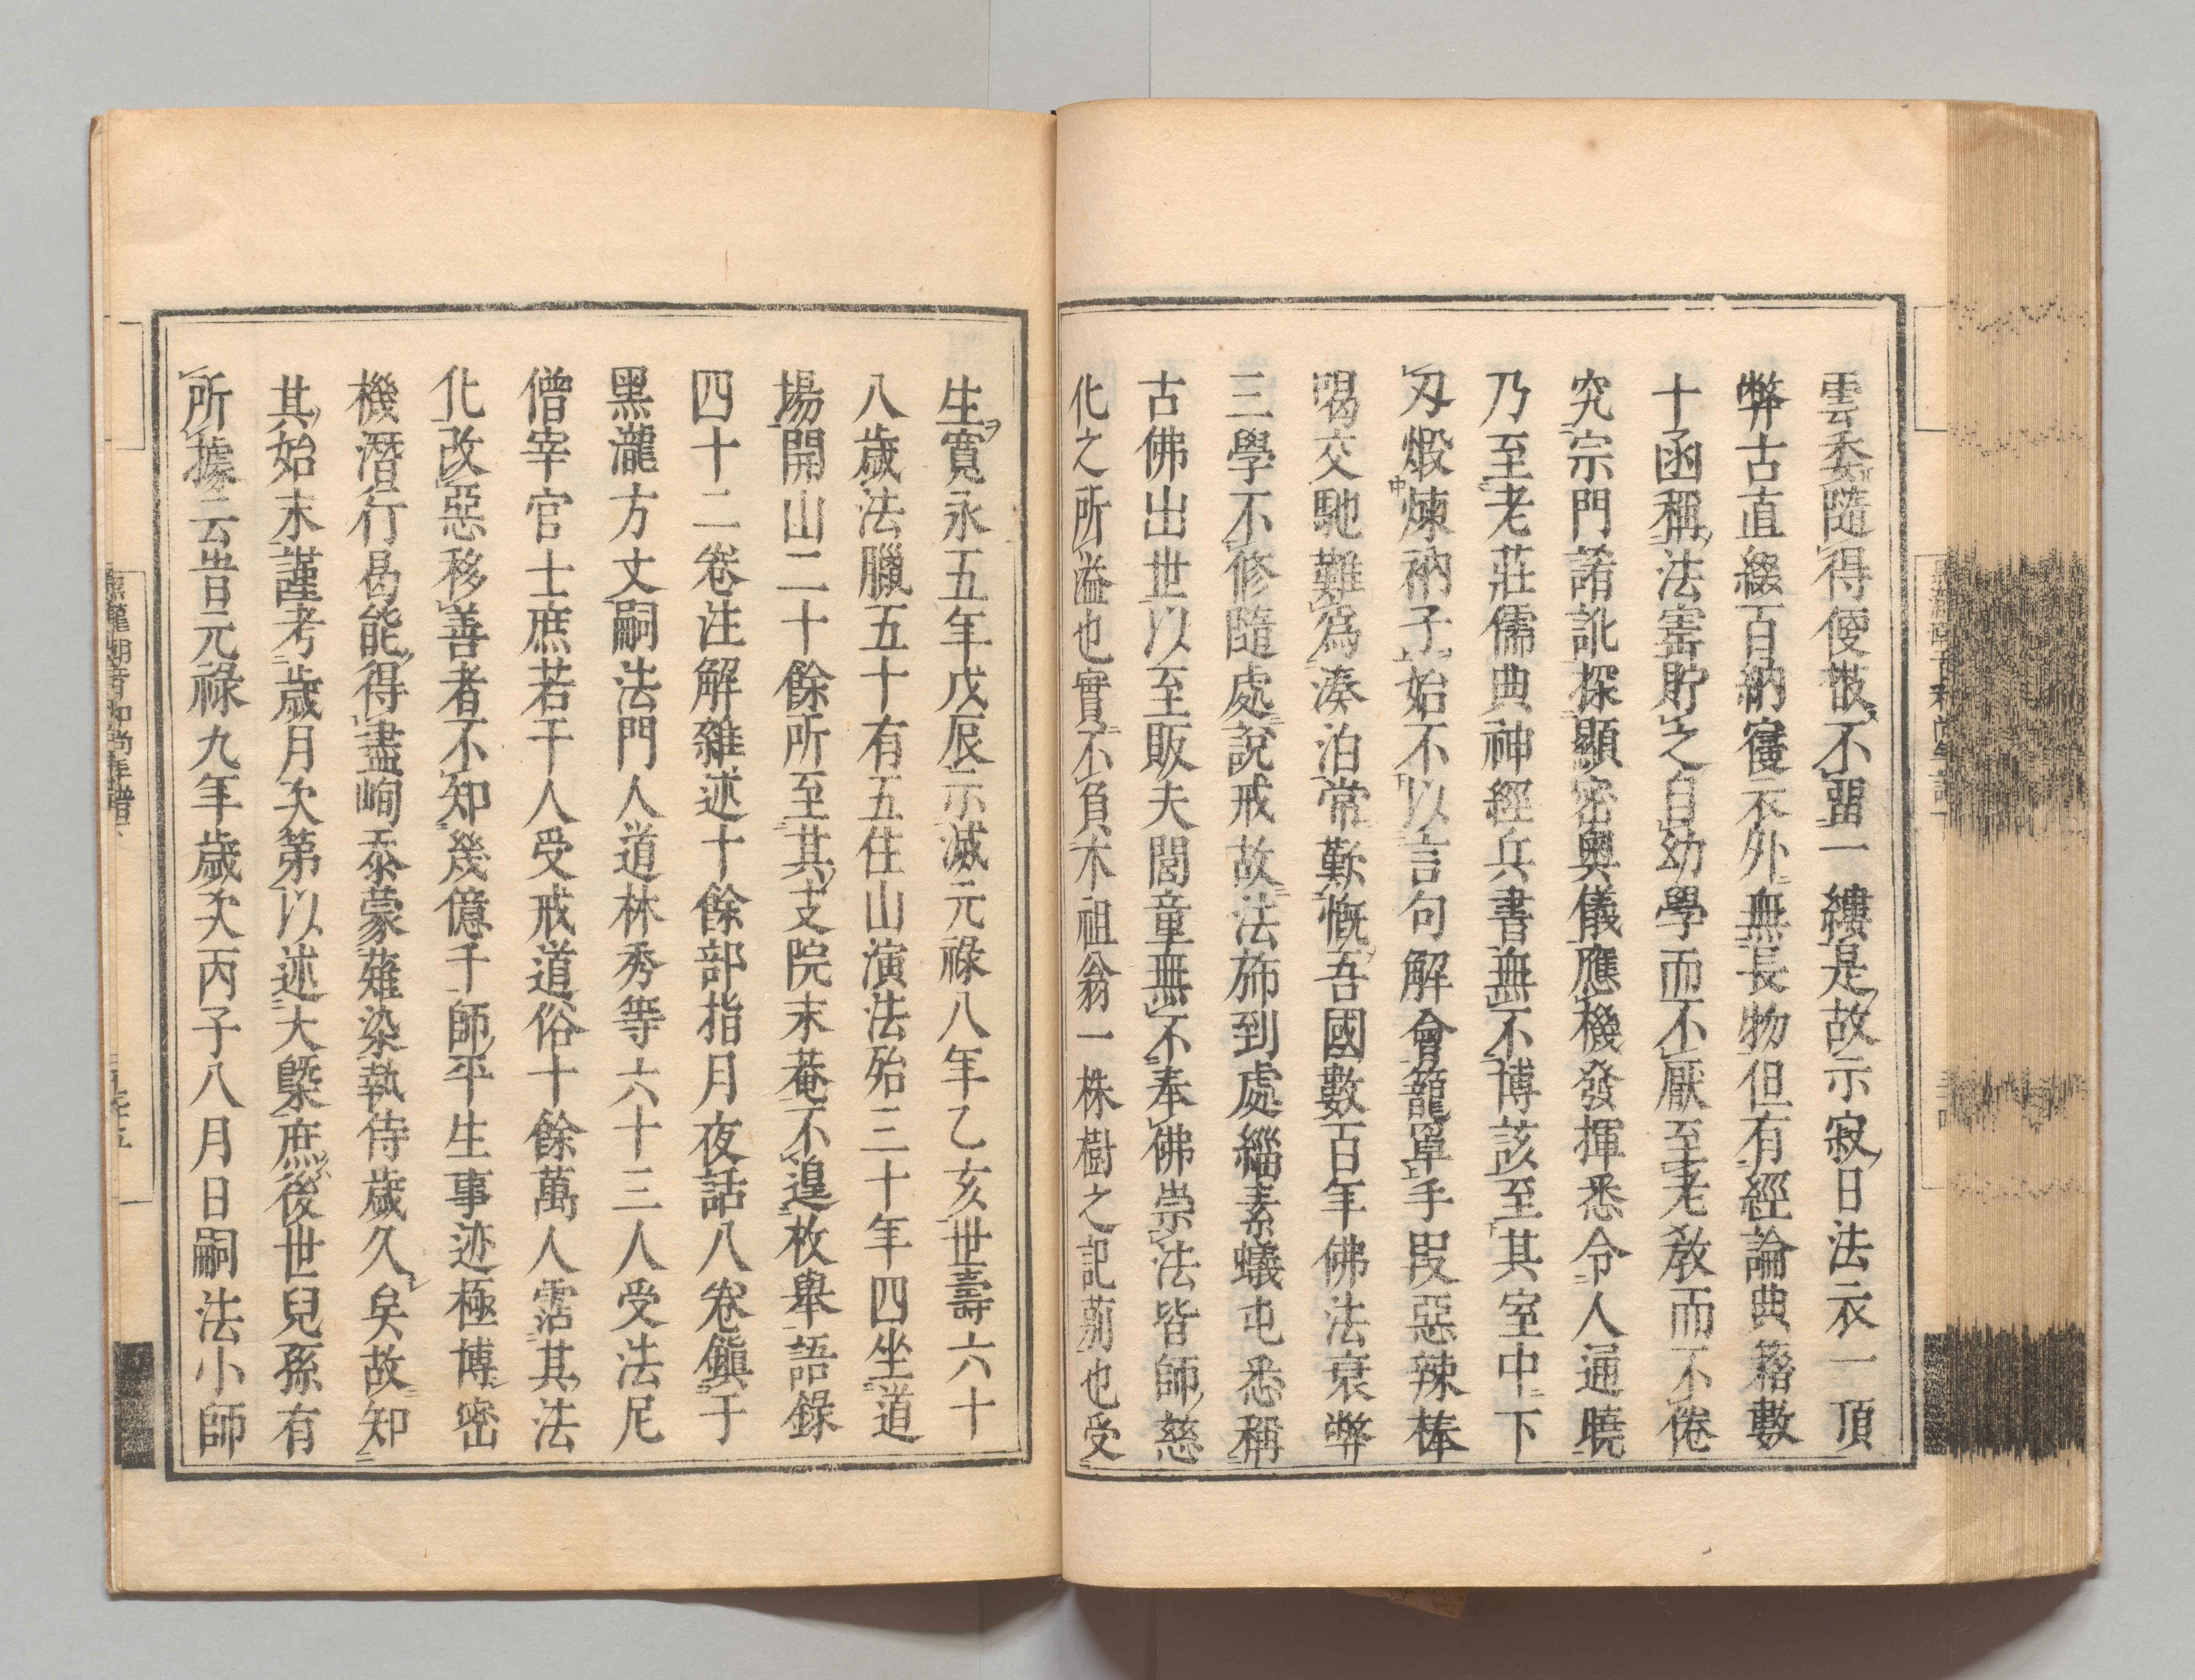 雲委隨得便散不畱一縷是故示寂日法衣一頂
弊古直綴百衲寢衣外無長物但有經論典籍數
十函稱法窖貯之自幼學而不厭至老敎而不倦
究宗門誵訛探顯密奧儀應機發揮悉令人通曉
乃至老莊儒典神經兵書無不博該至其室中下
刄煅煉衲子始不以言句解會籠單手段惡辣棒
喝交馳難爲湊泊常歎慨吾國數百年佛法衰弊
三學不修隨處說戒故法斾到處緇素蟻屯悉稱
古佛出世以至販夫閭童無不奉佛崇法皆師慈
化之所溢也實不負木祖翁一株樹之記莂也受
生寬永五年戊辰示滅元祿八年乙亥世壽六十
八歲法臘五十有五住山演法殆三十年四坐道
場開山二十餘所至其支院末菴不遑枚舉語錄
四十二卷注解雜述十餘部指月夜話八卷鎭于
黑瀧方丈嗣法門人道林秀等六十三人受法尼
僧宰官士庶若干人受戒道俗十餘萬人霑其法
化改惡移善者不知幾億千師平生事迹極博密
機潛行曷能得盡峋忝蒙薙染執侍歲久矣故知
其始末謹考歲月次第以述大槩庶後世兒孫有
所據云旹元祿九年歲次丙子八月日嗣法小師
黑瀧潮音和尚年譜